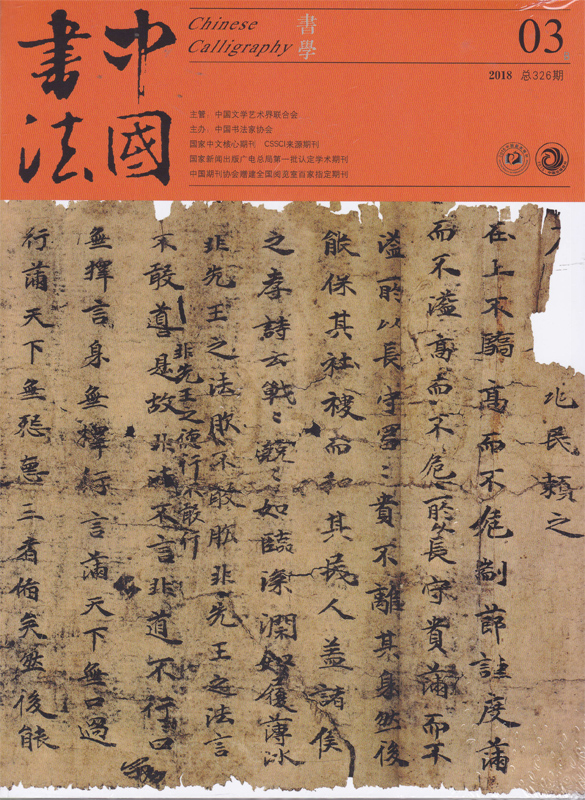 中國
書法
Chinese
Calligraphy
書學
03
2018 总326期
主管：中国文学艺术界联合会
主办：中国书法家协会
国家中文核心期刊 CSSCI来源期刊
国家新闻出版广电总局第一批认定学术期刊
中国期刊协会赠建全国阅览室百家指定期刊
兆民賴之
在上不驕高而不危制節謹度滿
而不溢高而不危所以長守貴滿而不
溢所以長守冨〻貴不離其身然後
能保其社稷而和其民人蓋諸侯
之孝詩云戰〻兢〻如臨深淵如履薄冰
非先王之法服不敢服非先王之法言
不敢噵是故非法不言非道不行口
非先王之德行不敢行
無擇言身無擇行言滿天下無口過
行滿天下無怨惡三者俻矣然後能